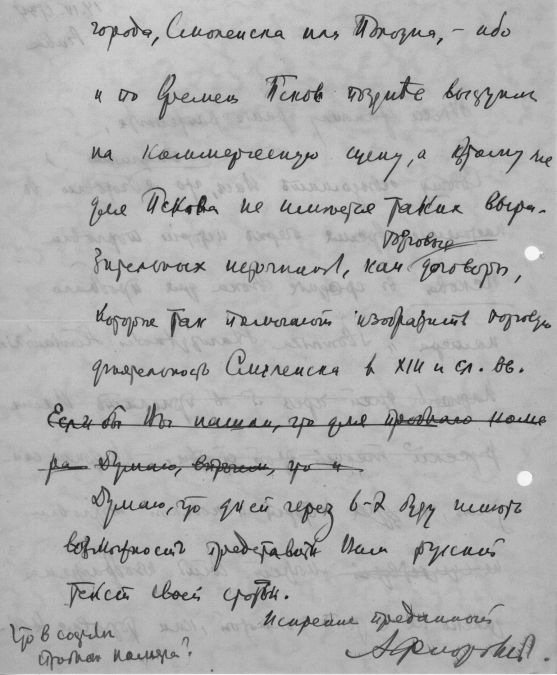 города, Смоленска или Полоцка, – ибо
и по времени Псков позднее выступил
на коммерческую сцену, а к тому же
для Пскова не имеется таких выра-
зительных источников, как торговые договоры,
которые так помогают изобразить торговую
деятельность Смоленска в XIII и сл. вв.
Если бы Вы нашли, что для пробного номе-
ра Думаю, впрочем, что и
Думаю, что дней через 6-7 буду иметь
возможность представить Вам русский
текст своей статьи.
Искренне преданный
Что в
пробном номере?